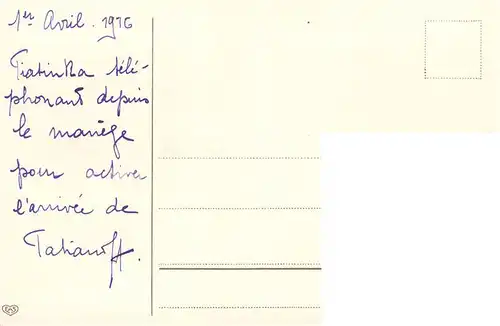 1er Avril. 1916
Piatinka télé-
phonant depuis
le manège
pour activer
l'arrivée de
Tatianoff.